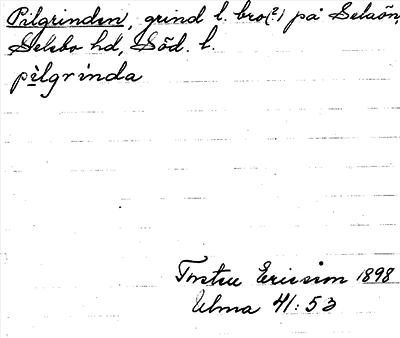 Pilgrinden, grind l. bro(?) på Selaön,
Selebo hd, Söd. l.
pìlgrinda
Torsten Ericsson 1898
Ulma 41:53